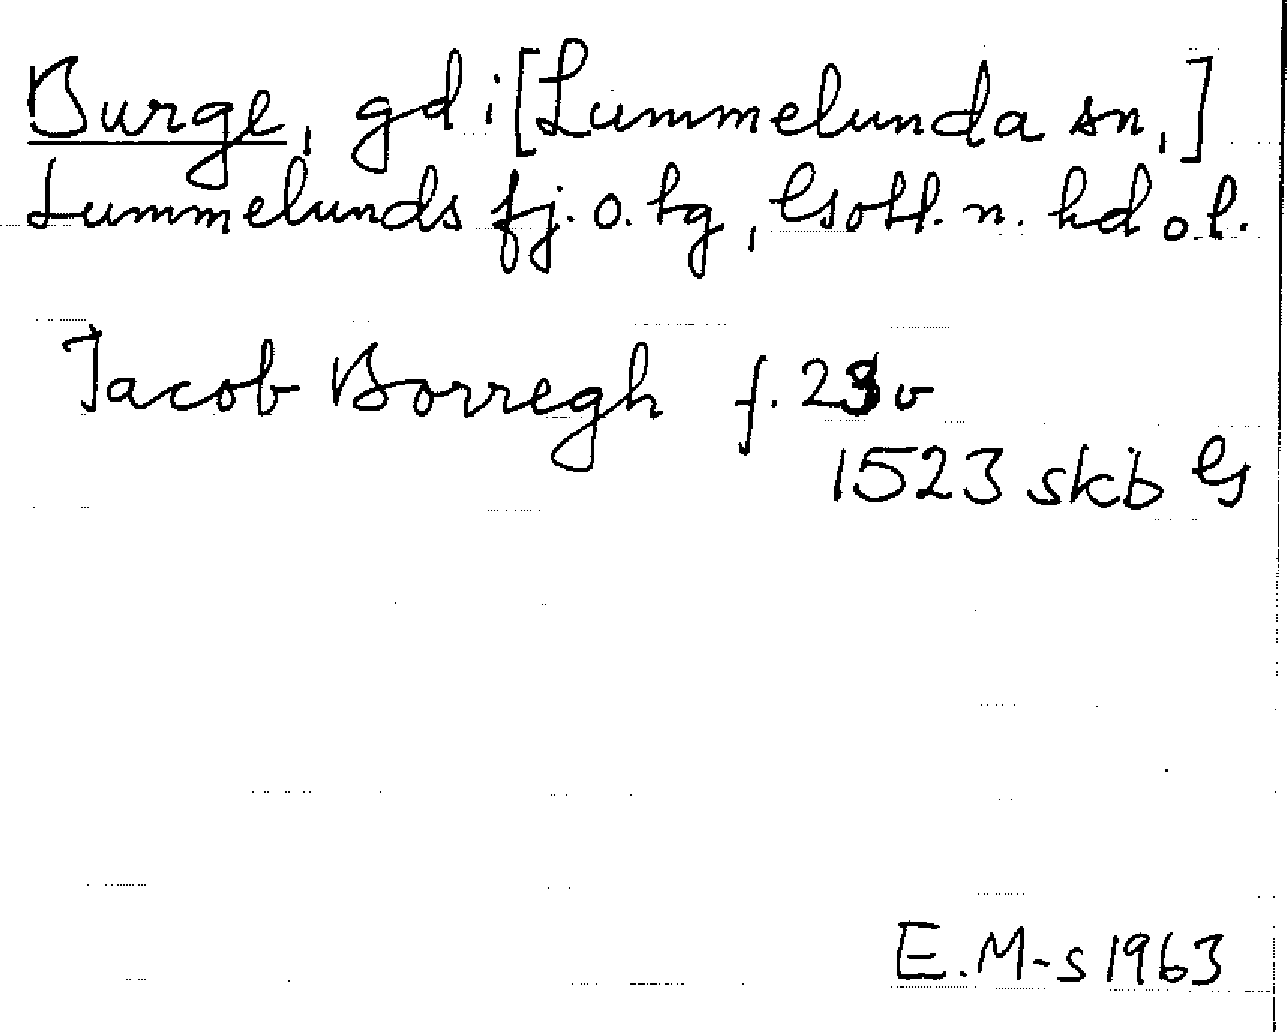 Burge, gd i [Lummelunda sn,]
Lummelunds fj. o. tg, Gotl. n. hd o l.
Jacob Borregh f. 23 v
1523 skb G
E.M-s 1963